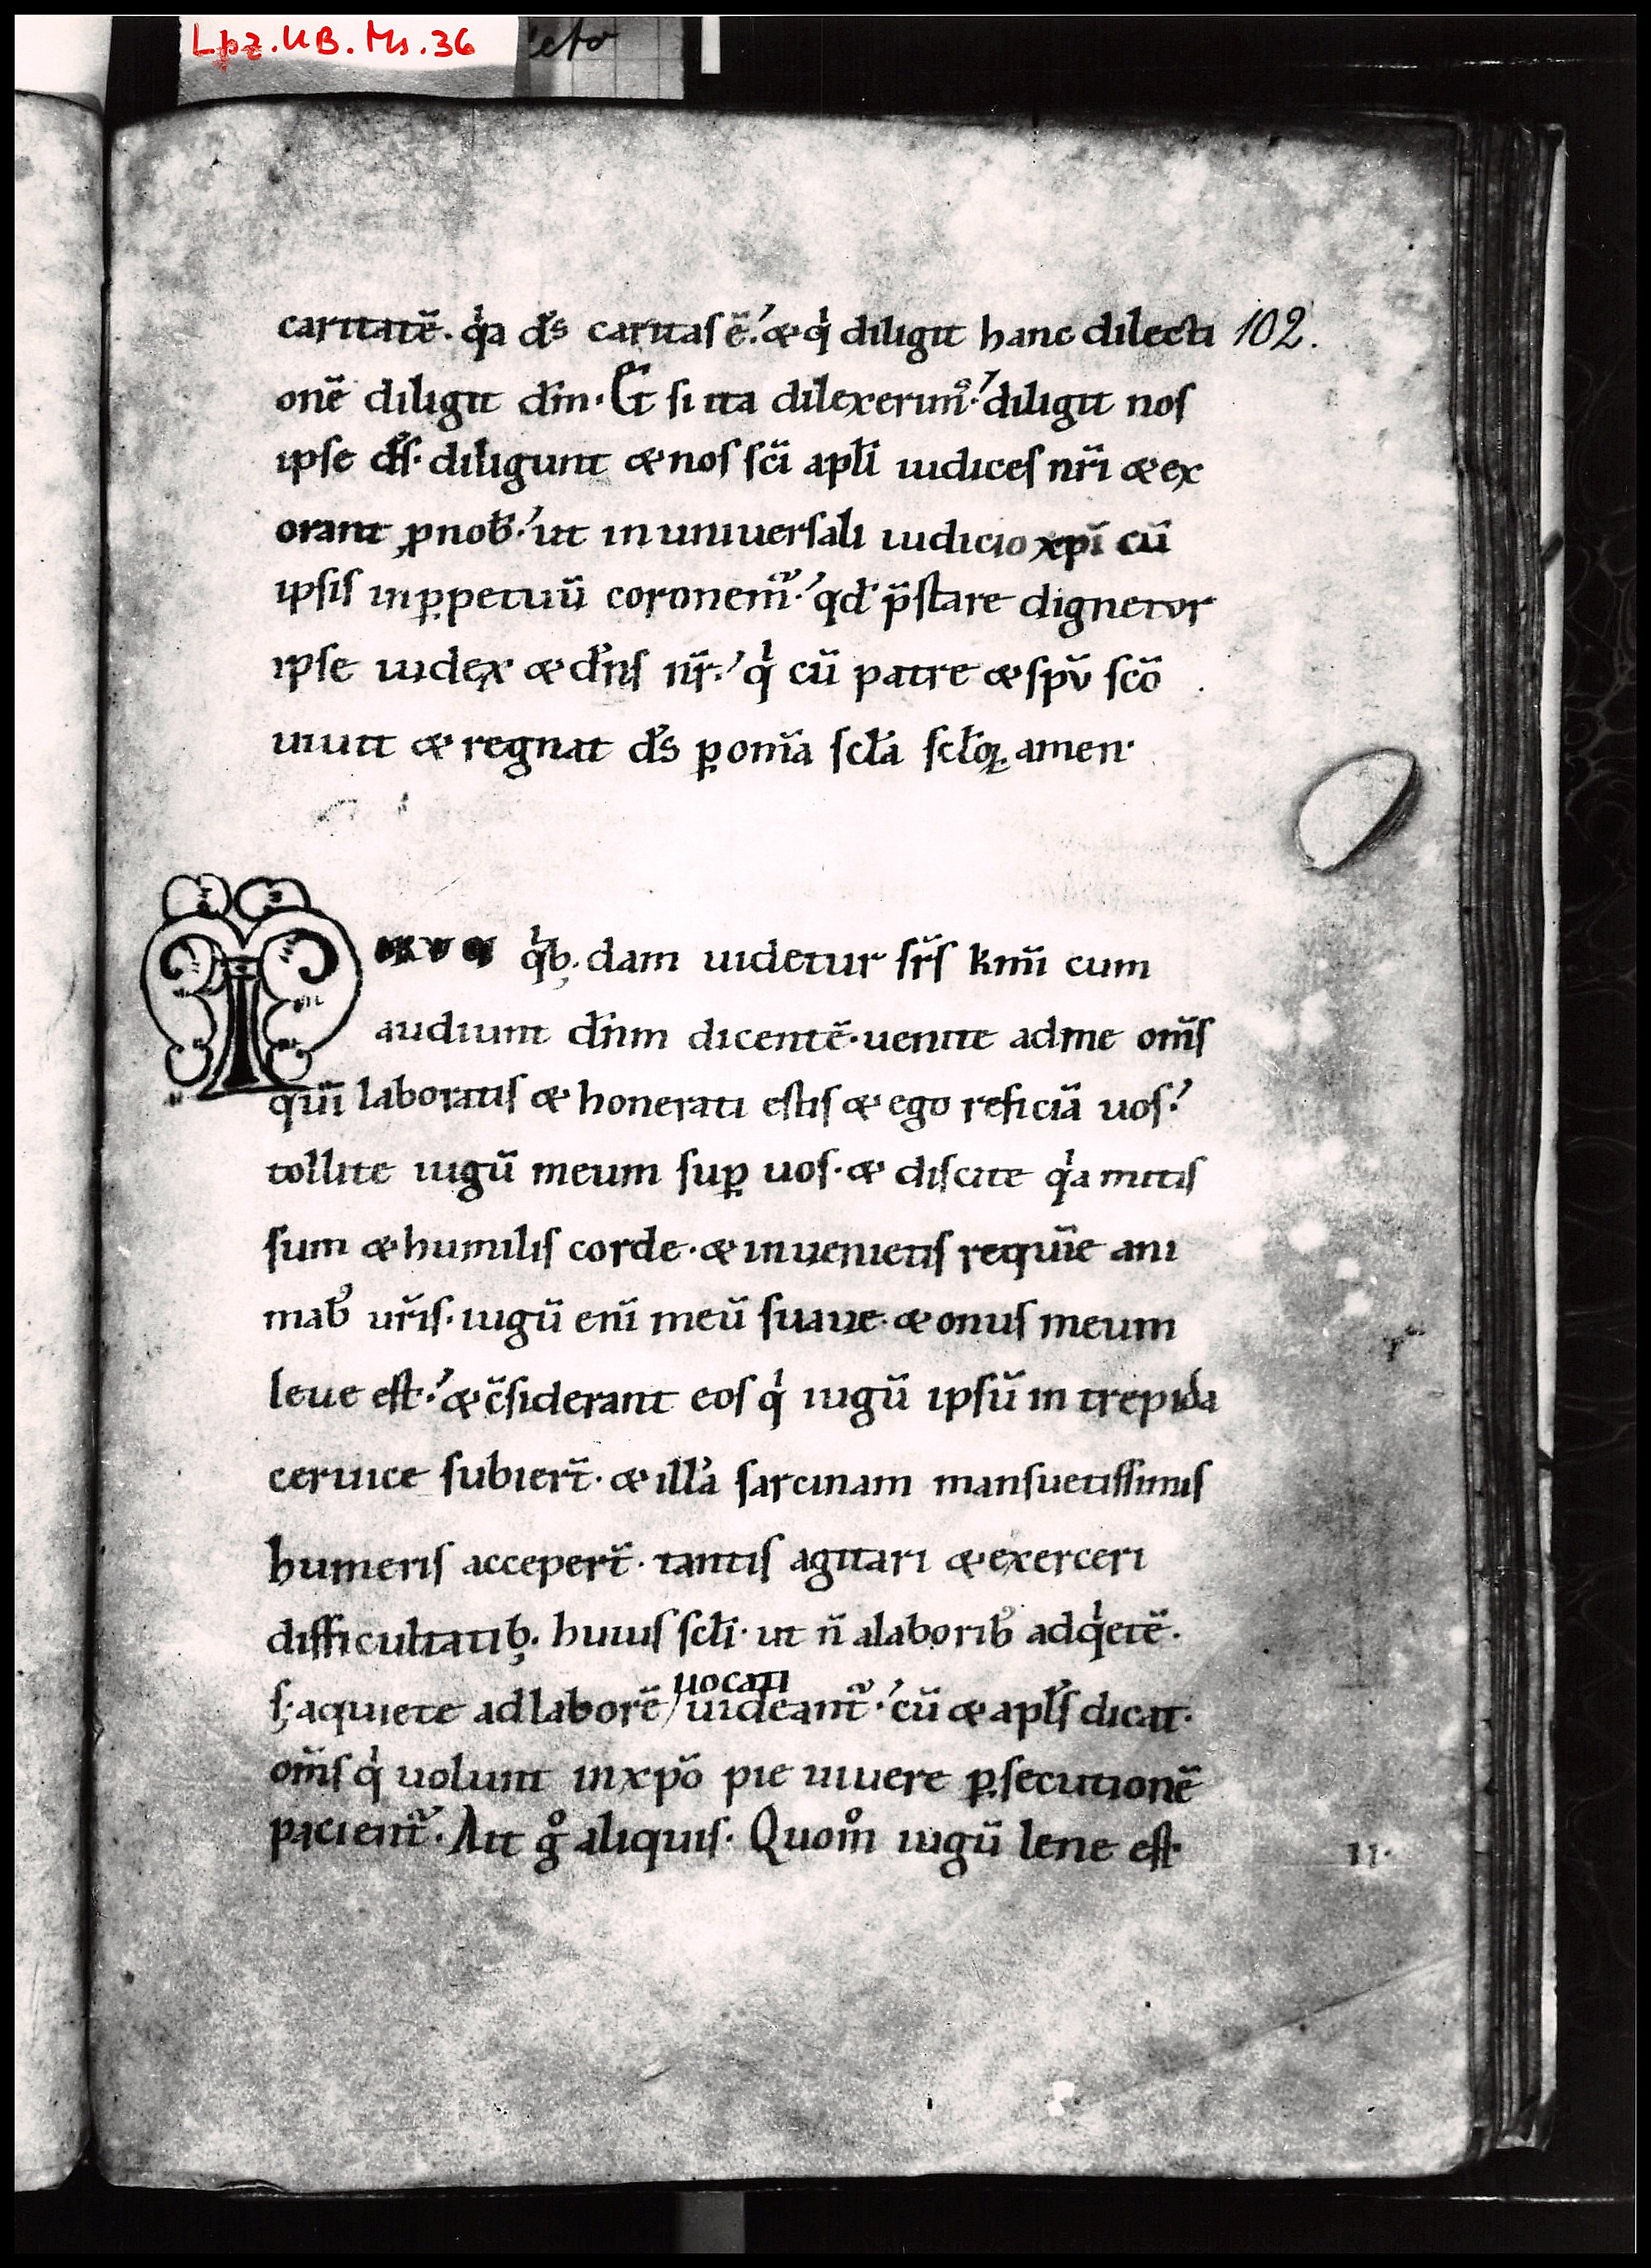 Lpz. UB. Ms. 36
caritatē. qͥa d̄s caritas ē.' & qͥ diligit hanc dilecti 102.
onē diligit dm̄. Et si ita dilexerim᷒.' diligit nos
ipse d̄s. diligunt & nos sc̄i apl̄i iudices nr̄i & ex
orant ꝓ nob̄.' ut in uniuersali iudicio xp̄i cū
ipsis in ꝑpetuū coronem̄.' qd̄ p̄stare dignetur
ipse iudex & dn̄s nr̄.' qͥ cū patre & spū sc̄o
uiuit & regnat d̄s ꝑ om̄ia scl̄a scl̄oꝝ amen.
qͥbꝫ. dam uidetur fr̄s km̄i cum
audiunt dn̄m dicentē. uenite ad me om̄s
qui laboratis & honerati estis & ego reficiā uos.'
tollite iugū meum suꝑ uos. & discite qͥa mitis
sum & humilis corde. & inuenietis requiē ani
mab᷒ ur̄is. iugū enī meū suaue. & onus meum
leue est.' & c̄siderant eos qͥ iugū ipsū in trepida
ceruice subiert̄. & illā sarcinam mansuetissimis
humeris accepert̄. tantis agitari & exerceri
difficultatibꝫ. huius scl̄i. ut n̄ a laborib᷒ ad qͥetē.
sꝫ. a quiete ad laborē uocati uideant̄.' cū & apl̄s dicat.
om̄s qͥ uolunt in xp̄o pie uiuere ꝑsecutionē
pacient̄. Ait gͦ aliquis. Quom̊ iugū lene est.